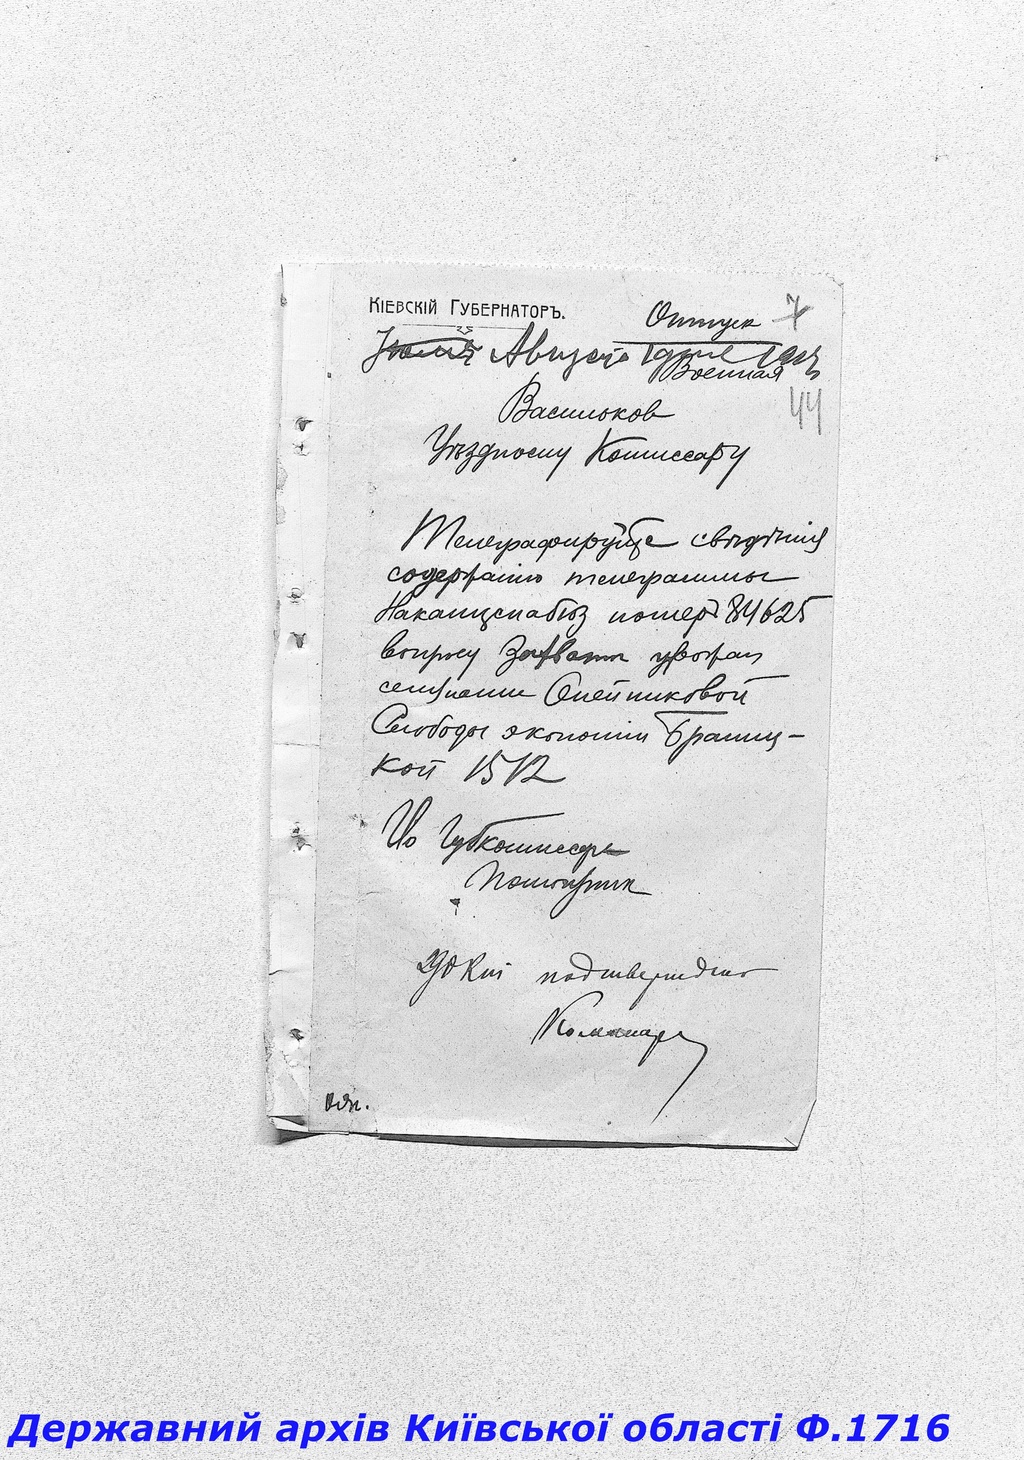 Кіевскій Губернаторъ.
Отпуск 7
Августа 1 дня 1917
Военная
44
Васильков
Уѣздному Комиссару
Телеграфируйте свѣдѣнія
содержанію телеграммы
номер 84625
вопросу Захвата урожая
селянами Олейниковой
Слободы экономіи Браниц-
кой 1512
Ио Губкомиссара
подтверждаю
Державний архів Київської області Ф.1716